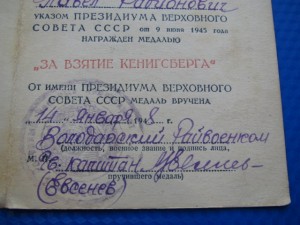 Павел Родионович
указом ПРЕЗИДИУМА ВЕРХОВНОГО
СОВЕТА СССР от 9 июня 1945 года
НАГРАЖДЕН МЕДАЛЬЮ
„ЗА ВЗЯТИЕ КЕНИГСБЕРГА"
От имени ПРЕЗИДИУМА ВЕРХОВНОГО
СОВЕТА СССР МЕДАЛЬ ВРУЧЕНА
января
Володарский Райвоенком
(должность, военное звание и подпись лица,
М. П. капитан
вручившего медаль)
(Евсенев)